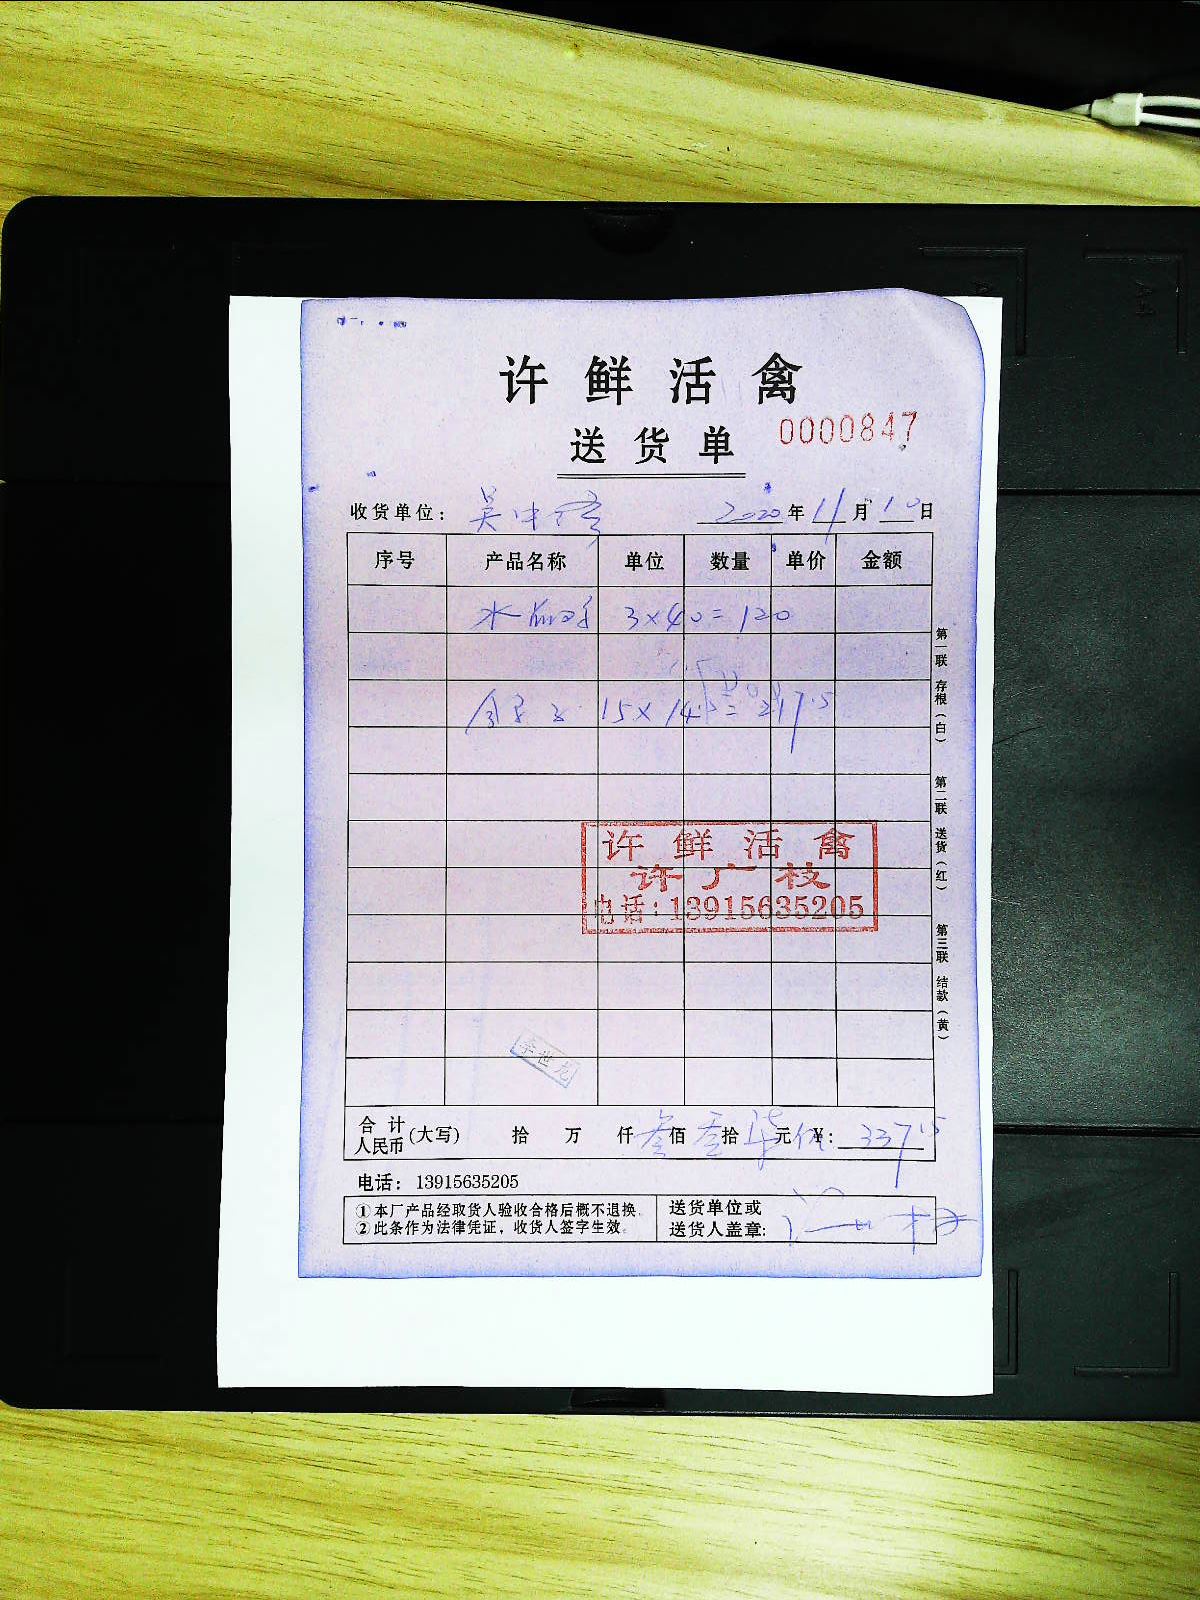 许鲜活禽
送货单 0000847
收货单位： 吴中 2020年11月10日
序号 产品名称 单位 数量 单价 金额
水 3×40=120
15×14.5=217.5
许鲜活禽
许广枝
电话：13915635205
李世龙
合计人民币(大写) 拾 万 仟 叁佰 叁拾 柒元 伍 ¥：337.5
电话： 13915635205
①本厂产品经取货人验收合格后概不退换。
②此条作为法律凭证，收货人签字生效。
送货单位或
送货人盖章：
第一联 存根（白） 第二联 送货（红） 第三联 结款（黄）